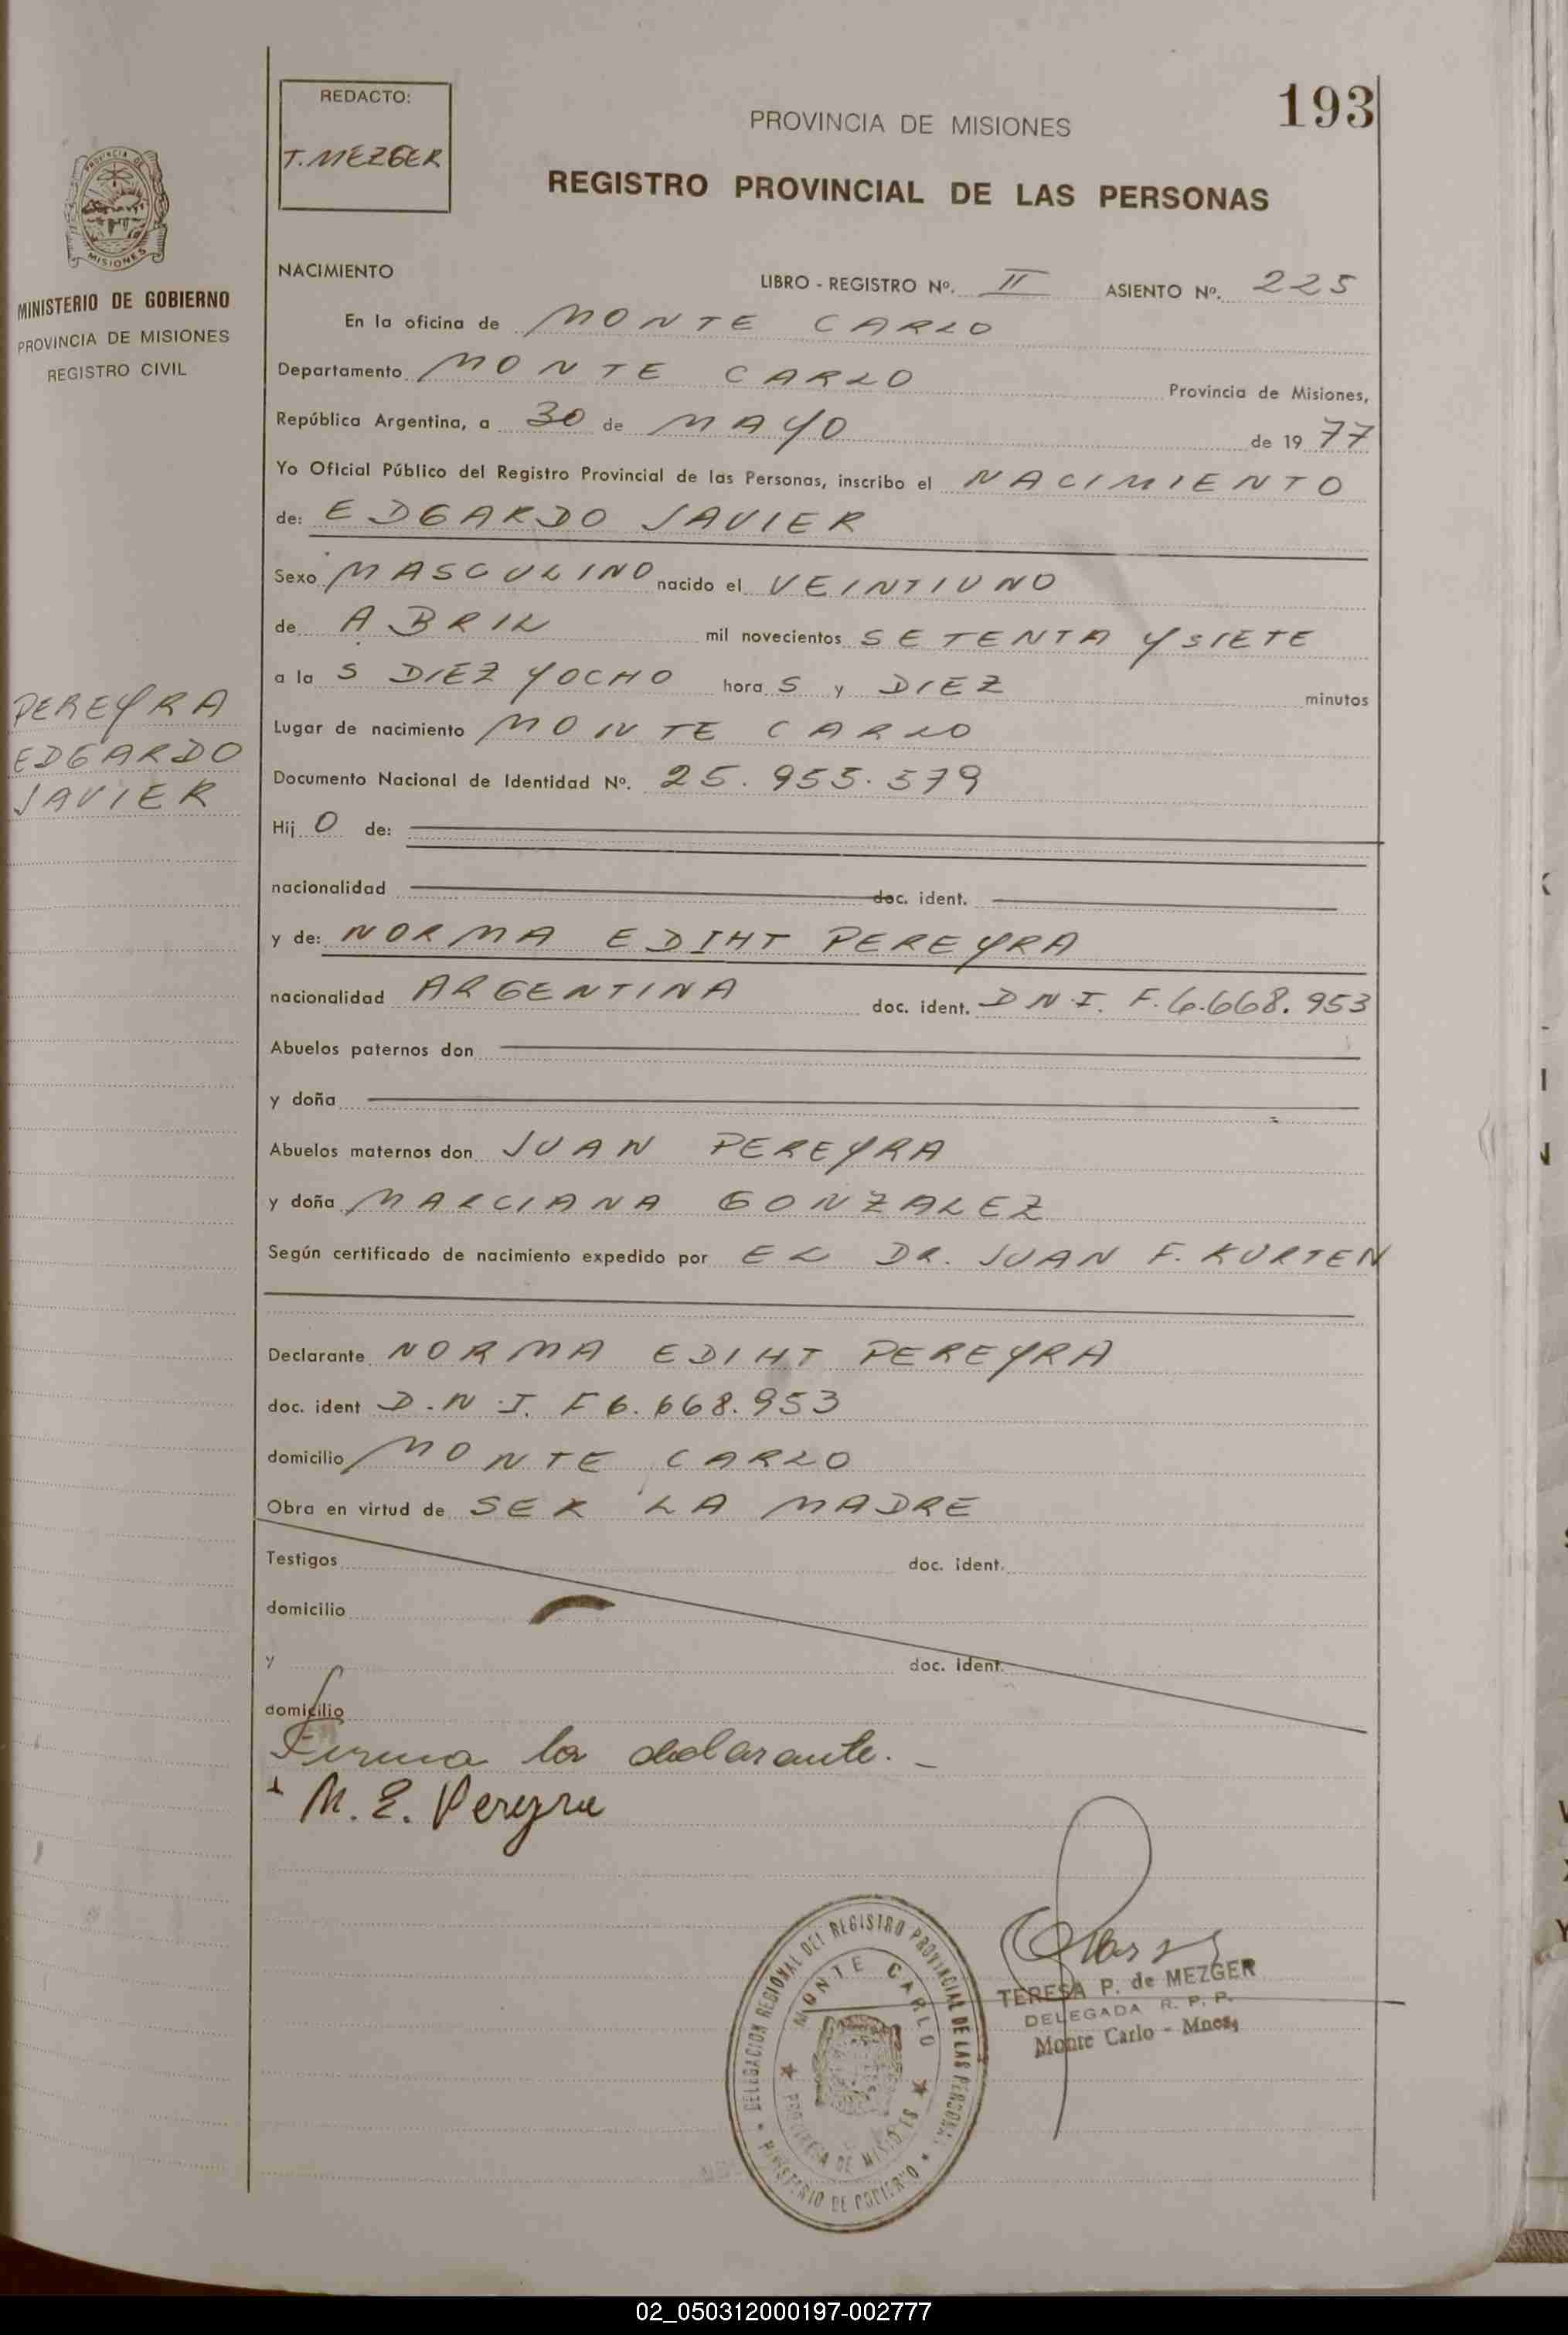 REDACTO:
T. MEZGER
193
PROVINCIA DE MISIONES
REGISTRO PROVINCIAL DE LAS PERSONAS
PROVINCIA DE
MISIONES
MINISTERIO DE GOBIERNO
PROVINCIA DE MISIONES
REGISTRO CIVIL
PEREYRA
EDGARDO
JAVIER
NACIMIENTO LIBRO - REGISTRO Nº. II ASIENTO Nº. 225
En la oficina de MONTE CARLO
Departamento MONTE CARLO Provincia de Misiones,
República Argentina, a 30 de MAYO de 19 77
Yo Oficial Público del Registro Provincial de las Personas, inscribo el NACIMIENTO
de: EDGARDO JAVIER
Sexo MASCULINO nacido el VEINTIUNO
de ABRIL mil novecientos SETENTA Y SIETE
a la S DIEZ Y OCHO hora S y DIEZ minutos
Lugar de nacimiento MONTE CARLO
Documento Nacional de Identidad Nº. 25.955.579
Hij O de:
nacionalidad doc. ident.
y de: NORMA EDIHT PEREYRA
nacionalidad ARGENTINA doc. ident. D.N.I. F.6.668.953
Abuelos paternos don
y doña
Abuelos maternos don JUAN PEREYRA
y doña MARCIANA GONZALEZ
Según certificado de nacimiento expedido por EL DR. JUAN F. KURTEN
Declarante NORMA EDIHT PEREYRA
doc. ident D.N.I. F6.668.953
domicilio MONTE CARLO
Obra en virtud de SER LA MADRE
Testigos doc. ident.
domicilio
y doc. ident.
domicilio
Firma la declarante. -
N. E. Pereyra
DELEGACION REGIONAL DEL REGISTRO PROVINCIAL DE LAS PERSONAS
MONTE CARLO
PROVINCIA DE MISIONES
MINISTERIO DE GOBIERNO
TERESA P. de MEZGER
DELEGADA R. P. P.
Monte Carlo - Mnes.
02_050312000197-002777